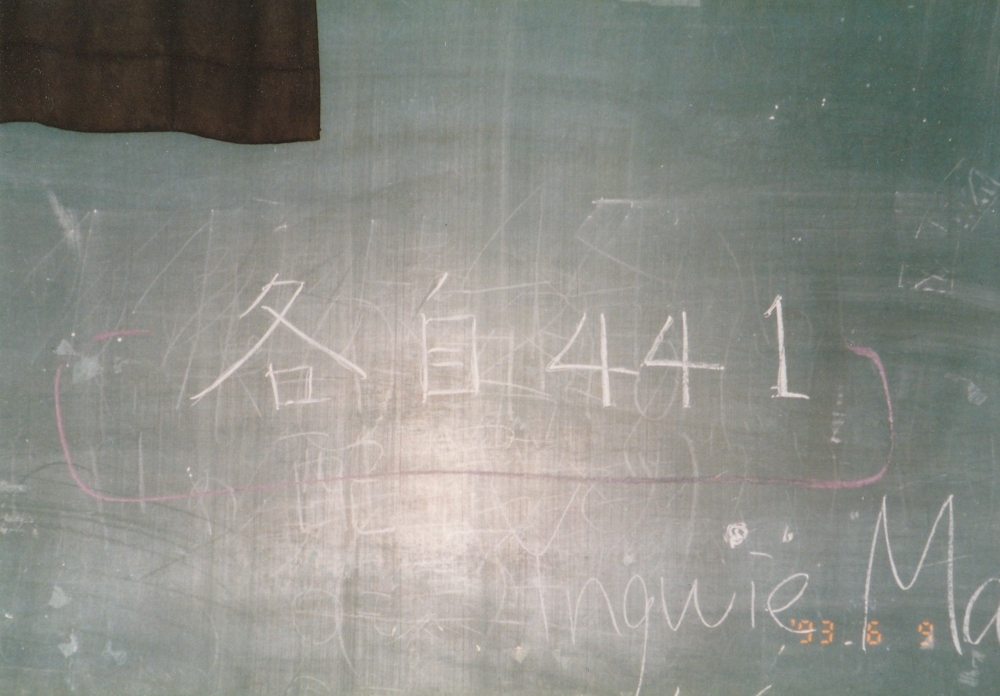 各自441
Yngwie Ma
'93. 6 9